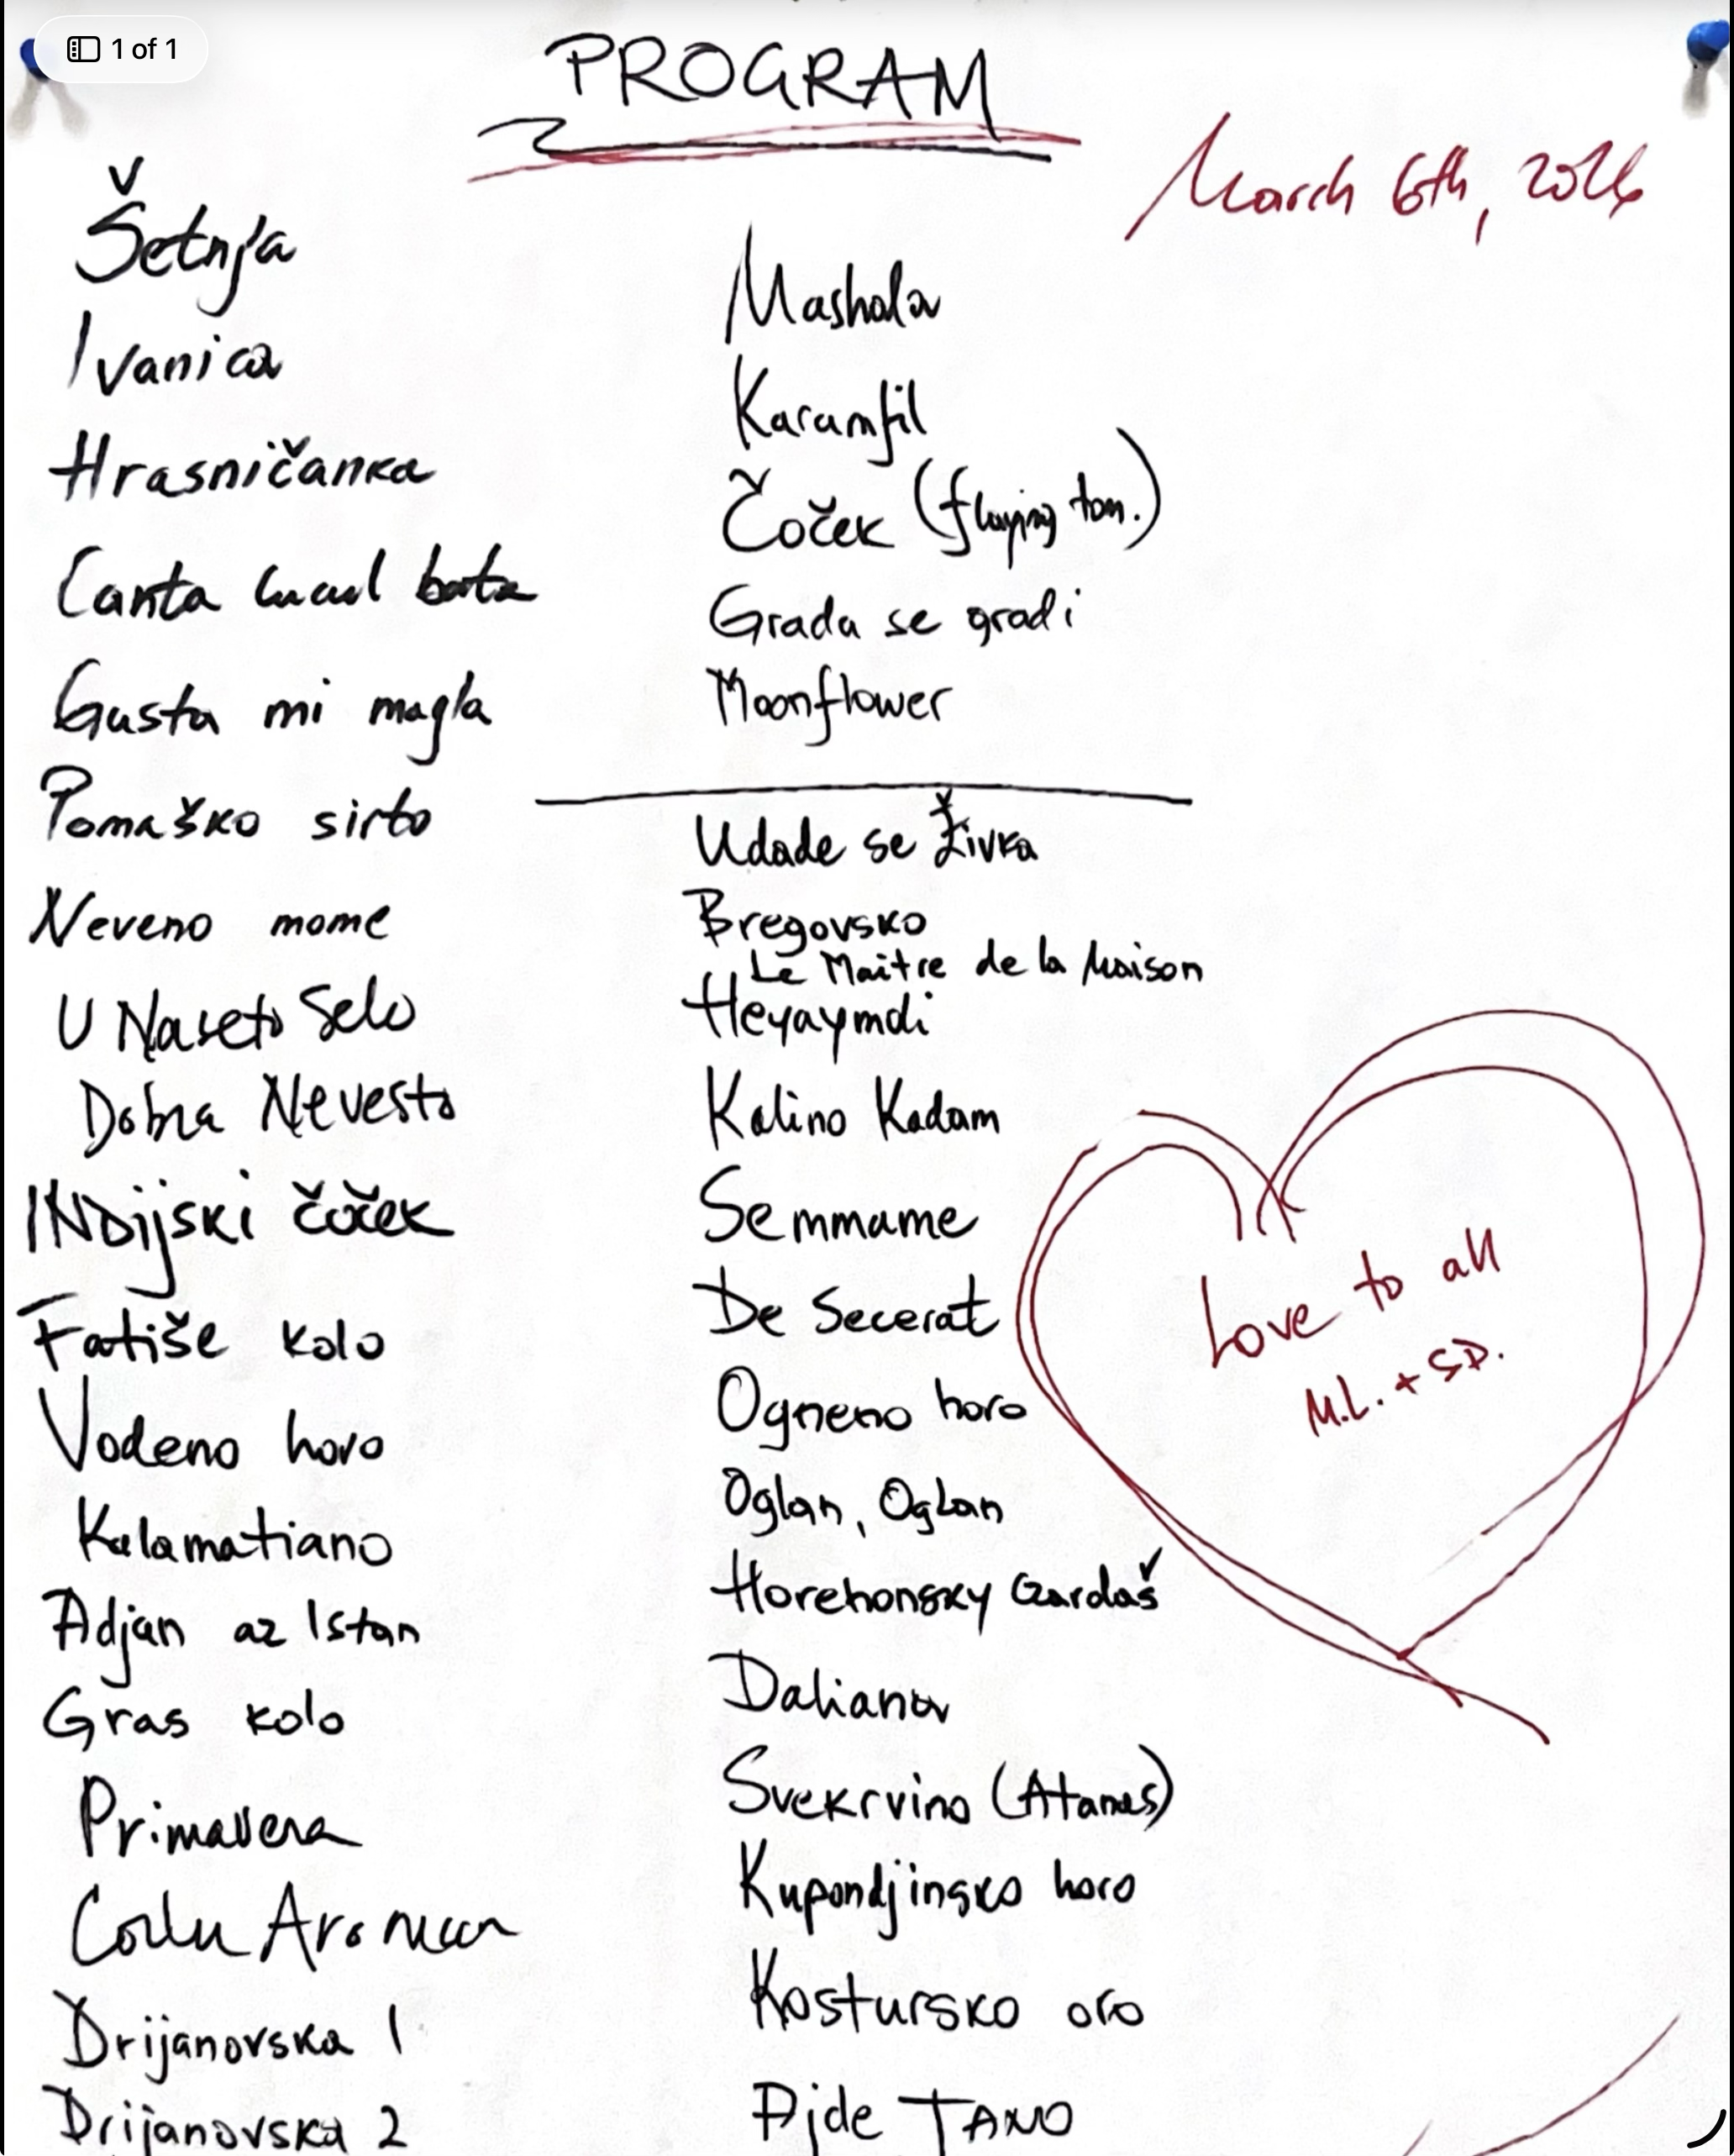 1 of 1
PROGRAM
March 6th, 2026
Šetnja
Ivanica
Hrasničanka
Canta cucul
Gusta mi magla
Pomaško sirto
Neveno mome
U Naseto Selo
Dobra Nevesto
INDijski čoček
Fatiše kolo
Vodeno horo
Kalamatiano
Adjan az Istan
Gras kolo
Primavera
Drijanovska 1
Drijanovska 2
Mashala
Karamfil
Čoček (flaying tom.)
Grada se gradi
Moonflower
Udade se Živka
Bregovsko
Le Maitre de la Maison
Heyaymoli
Kalino Kadam
Semmame
De Secerat
Ogneno horo
Oglan, Oglan
Horehonsky Czardaš
Daliana
Svekrvino (Atanas)
Kupondjinsko horo
Kostursko oro
Ajde TANO
Love to all
M.L. + SD.